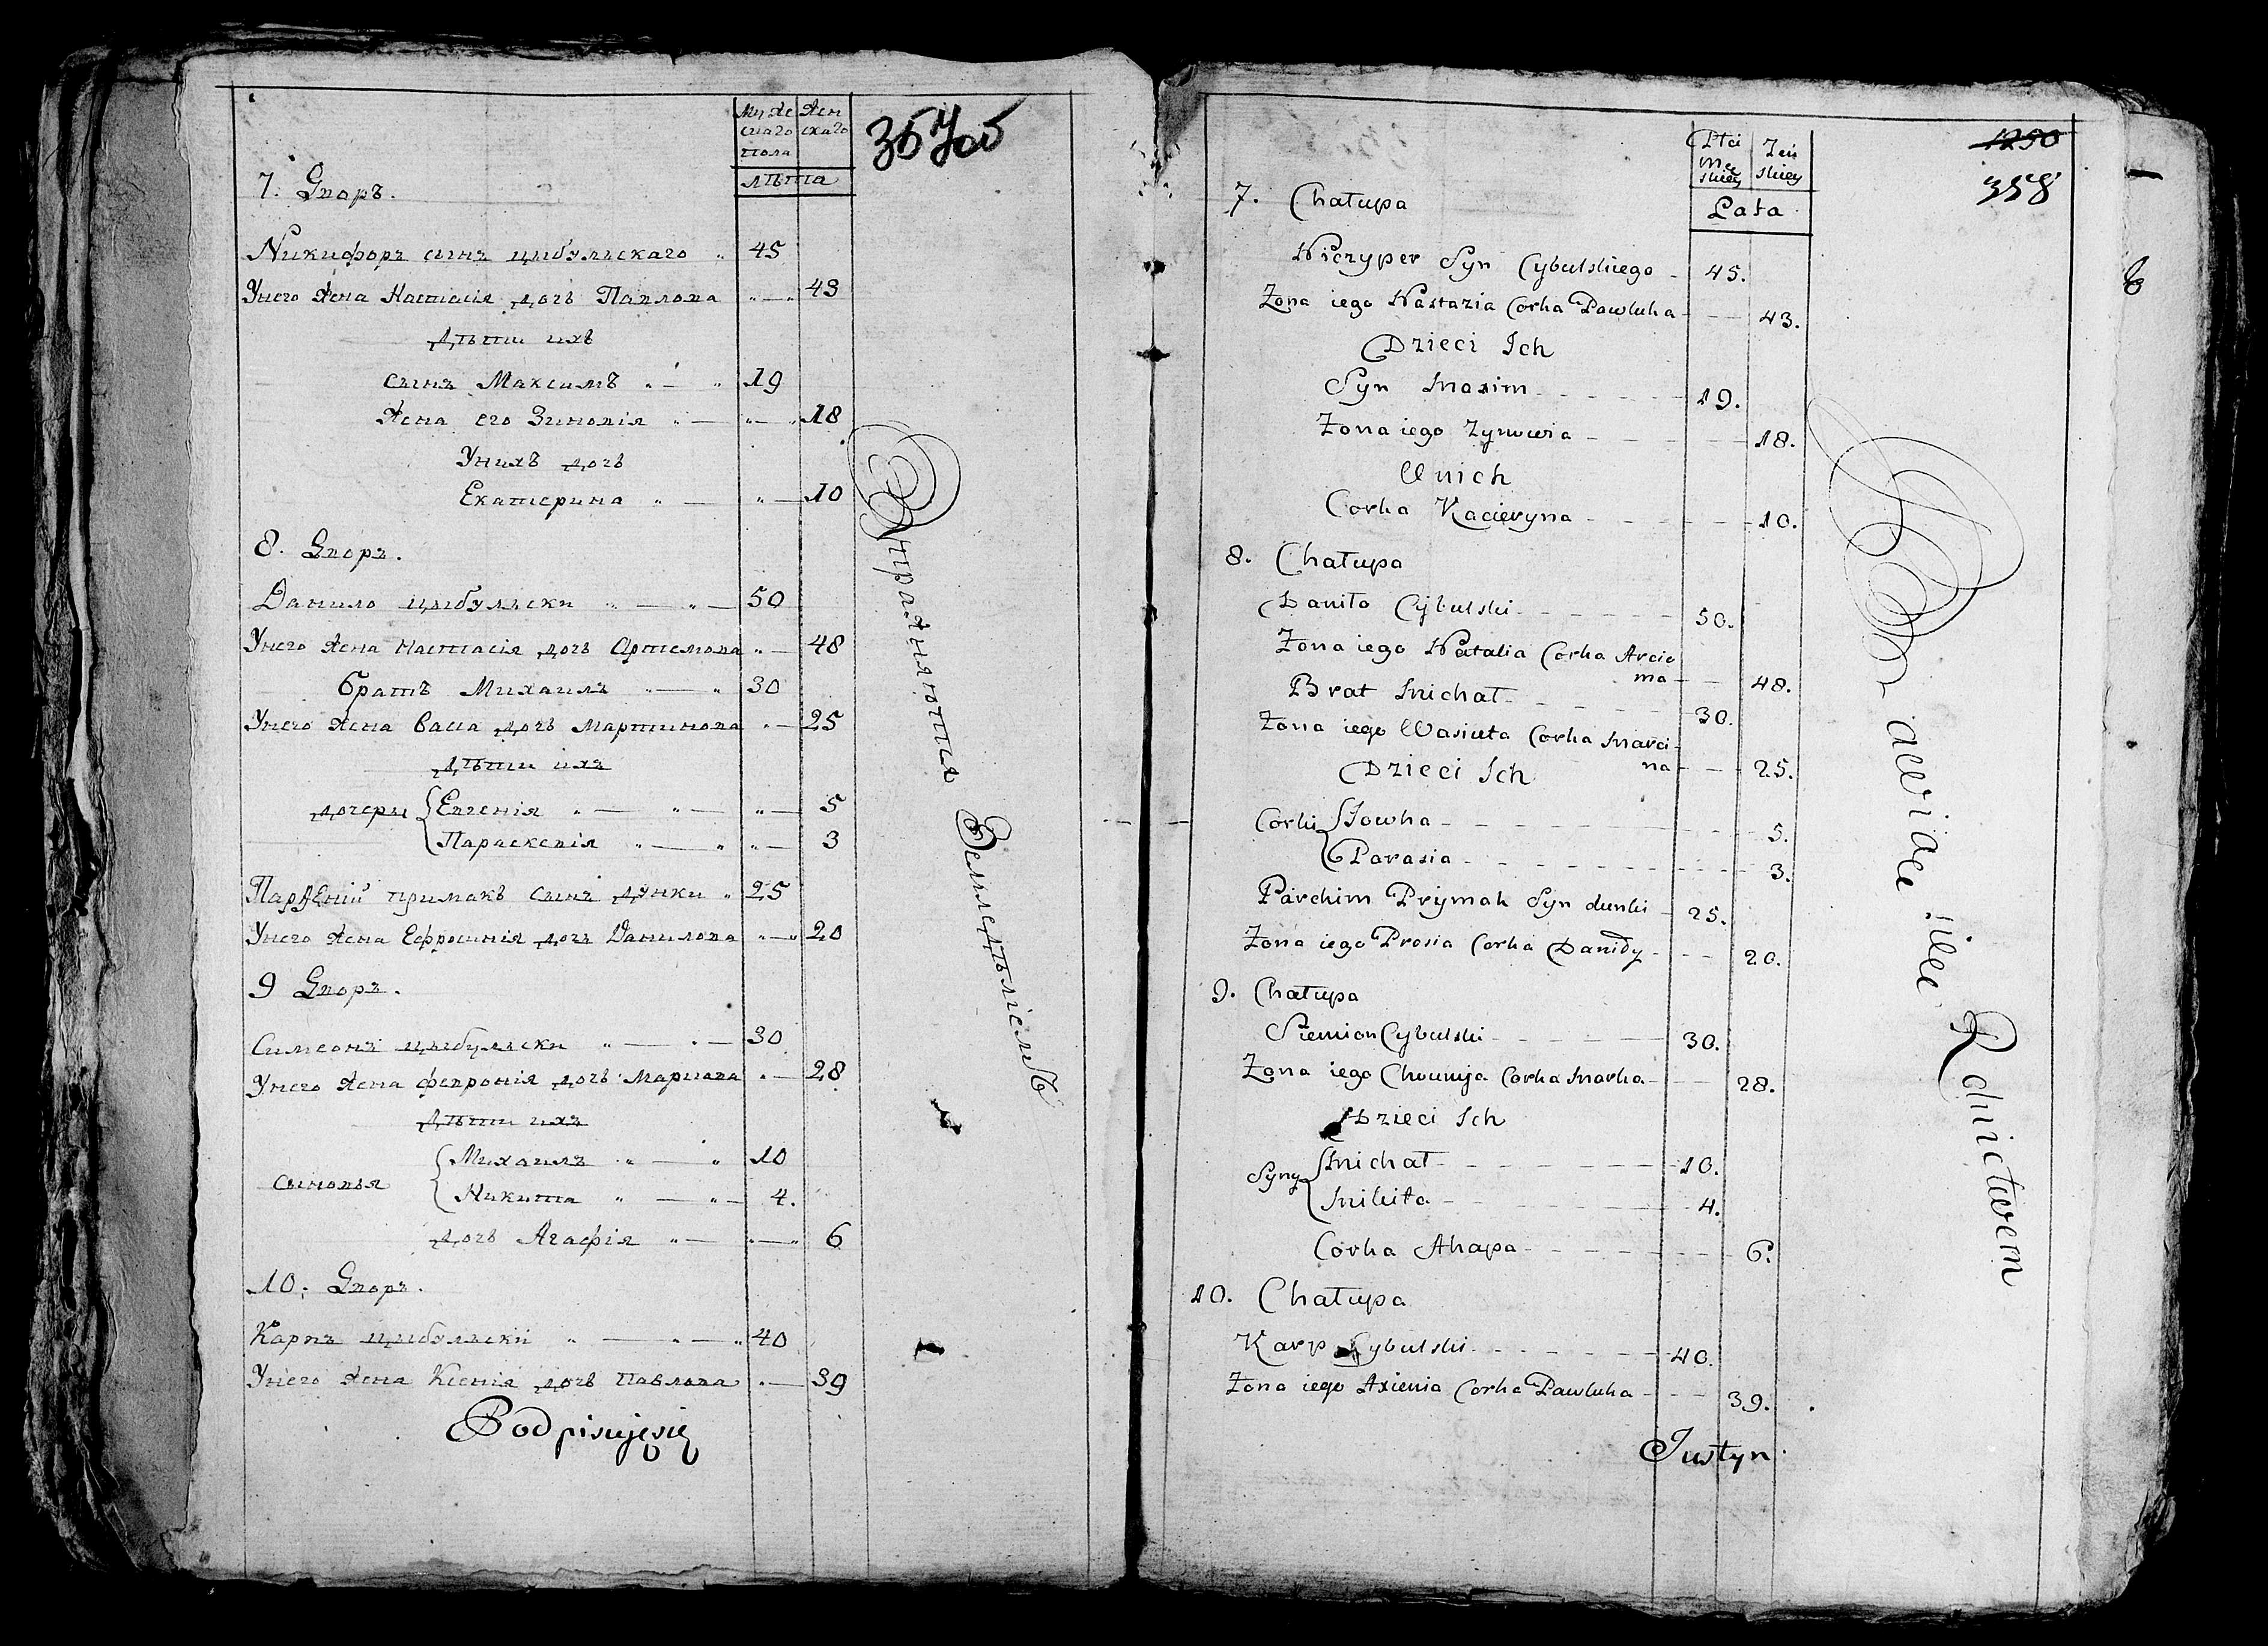 Мужескаго пола
Женскаго
лѣта
35 об
7. Дворъ.
Никифоръ сынъ цыбульскаго 45
Унего жена Настасія дочь Павлова 43
дѣти ихъ
сынъ Максимъ 19
жена его Зиновія 18
Унихъ дочь
Екатерина 10
8. Дворъ.
Данило цыбульски 50
Унего жена Настасія дочь Артемова 48
братъ Михаилъ 30
Унего жена Васса дочь Мартинова 25
дѣти ихъ
дочери Евгенія 5
Параскевія 3
Парѳеній примакъ сынъ дунки 25
Унего жена Ефросинія дочь Данилова 20
9 Дворъ.
Симеонъ цыбульски 30
Унего жена февронія дочь Маркова 28
дѣти ихъ
сыновья Михаилъ 10
Никита 4.
дочь Агафія 6
10. Дворъ.
Карпъ цыбульски 40
Унего жена Ксенія дочь Павлова 39
Упражняются Земледѣліемъ
Podpisuję się
Płci Męskiey
Żeńskiey
Lata
1290
358
7. Chałupa
Niczyper Syn Cybulskiego 45.
Żona iego Nastazia Corka Pawluka 43.
Dzieci Ich
Syn Maxim 19.
Żona iego Zynowia 18.
U nich
Corka Kacieryna 10.
8. Chałupa
Daniło Cybulski 50.
Żona iego Natalia Corka Arcio
ma 48.
Brat Michał 30.
Żona iego Wasiuta Corka Marci
na 25.
Dzieci Ich
Corki Jowha 5.
Parasia 3.
Parchim Prymak Syn dunki 25.
Żona iego Prosia Corka Daniły 20.
9. Chałupa
Siemion Cybulski 30.
Żona iego Chowruja Corka Marka 28.
Dzieci Ich
Syny Michał 10.
Mikita 4.
Corka Ahapa 6.
10. Chałupa
Karp Cybulski 40.
Żona iego Axienia Corka Pawluka 39.
Justyn
Rolnictwem